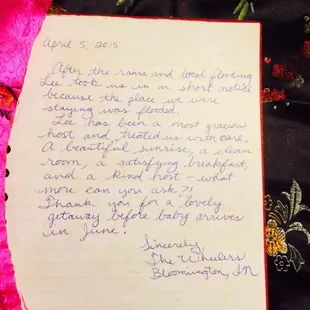 April 5, 2015
After the rains and local flooding
Lee took us in on short notice
because the place we were
staying was flooded.
Lee has been a most gracious
host and treated us with care.
A beautiful sunrise, a clean
room, a satisfying breakfast,
and a kind host - what
more can you ask?!
Thank you for a lovely
getaway before baby arrives
in June!
Sincerely,
The Whulers
Bloomington, IN